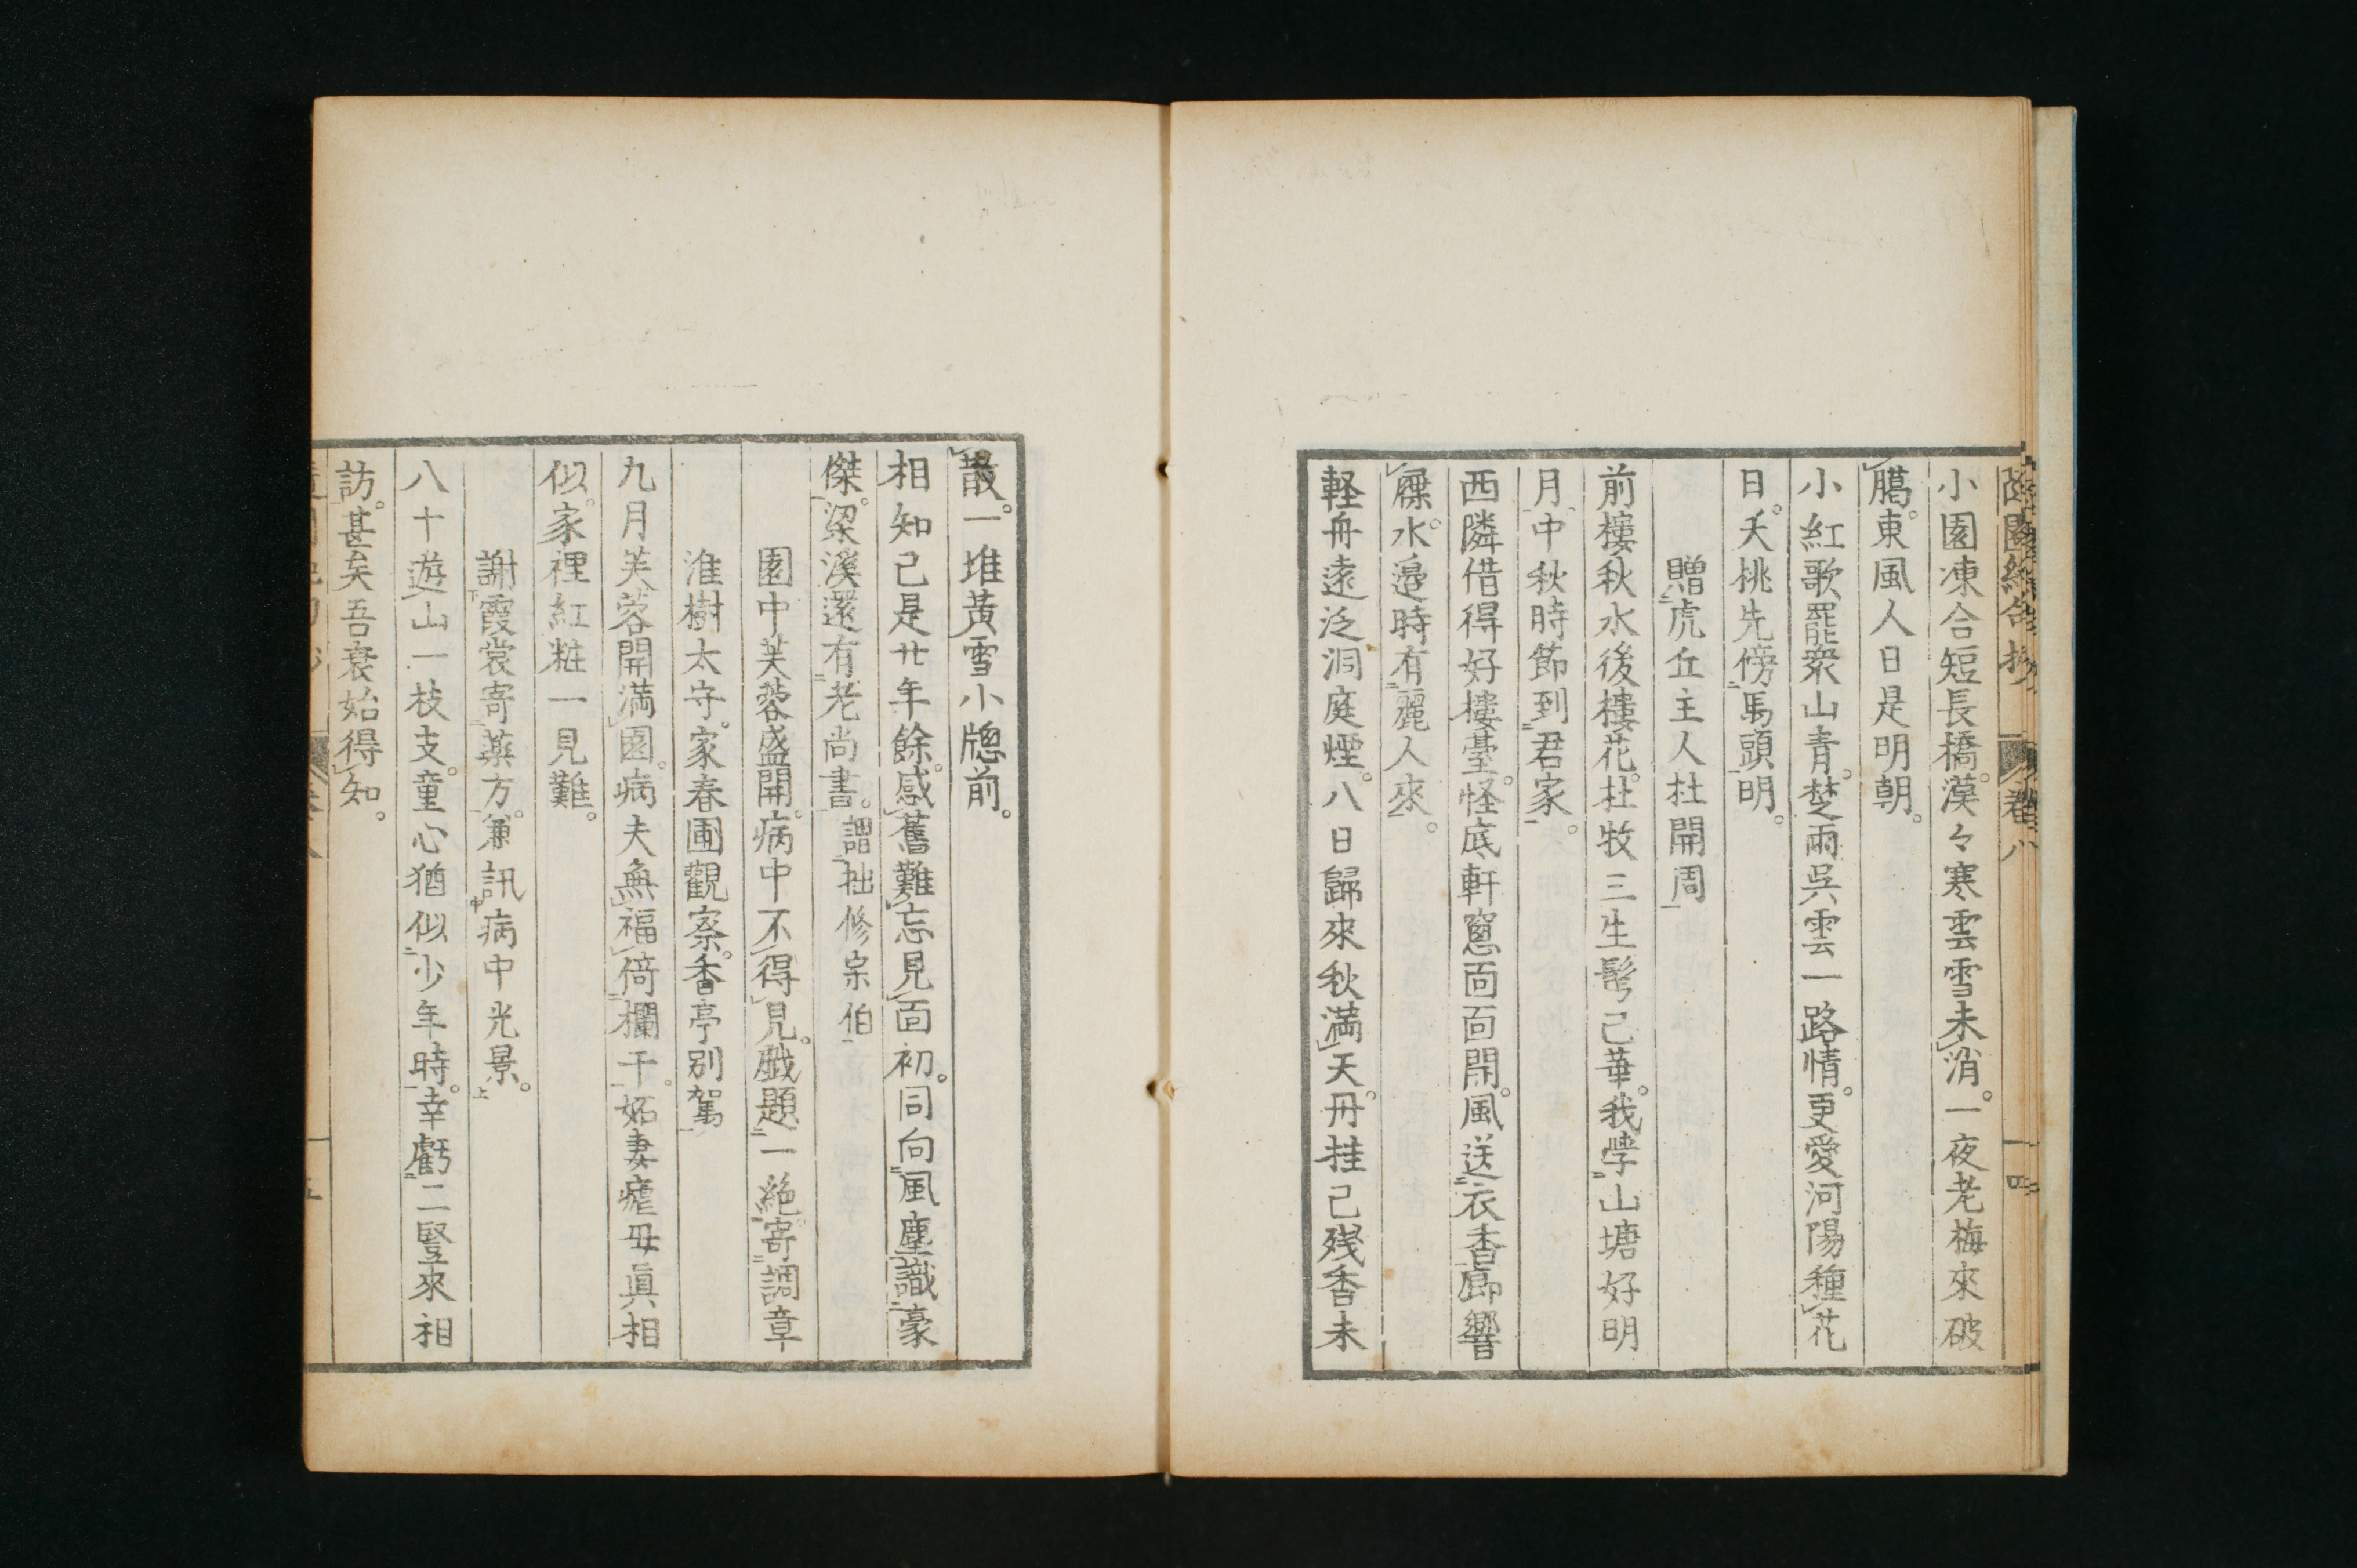 隨園絶句抄 卷八 十四
小園凍合短長橋。漠々寒雲雪未消。一夜老梅來破
臈。東風人日是明朝。
小紅歌罷衆山青。楚雨吳雲一路情。更愛河陽種花
日。夭桃先傍馬頭明。
贈虎丘主人杜開周
前樓秋水後樓花。杜牧三生髩已華。我學山塘好明
月。中秋時節到君家。
西隣借得好樓臺。怪底軒窻面面開。風送衣香廊響
屧。水邉時有麗人來。
軽舟遠泛洞庭煙。八日歸來秋滿天。丹桂已残香未
散。一堆黃雪小牕前。
相知已是廿年餘。感舊難忘見面初。同向風塵識豪
傑。梁溪還有老尚書。謂拙修宗伯
園中芙蓉盛開。病中不得見。戯題一絶寄調章
淮樹太守。家春圃觀察。香亭別駕
九月芙蓉開滿園。病夫無福倚欄干。妬妻瘧毋眞相
似。家裡紅粧一見難。
謝霞裳寄藥方。兼訊病中光景。
八十遊山一枝支。童心猶似少年時。幸虧二豎來相
訪。甚矣吾衰始得知。